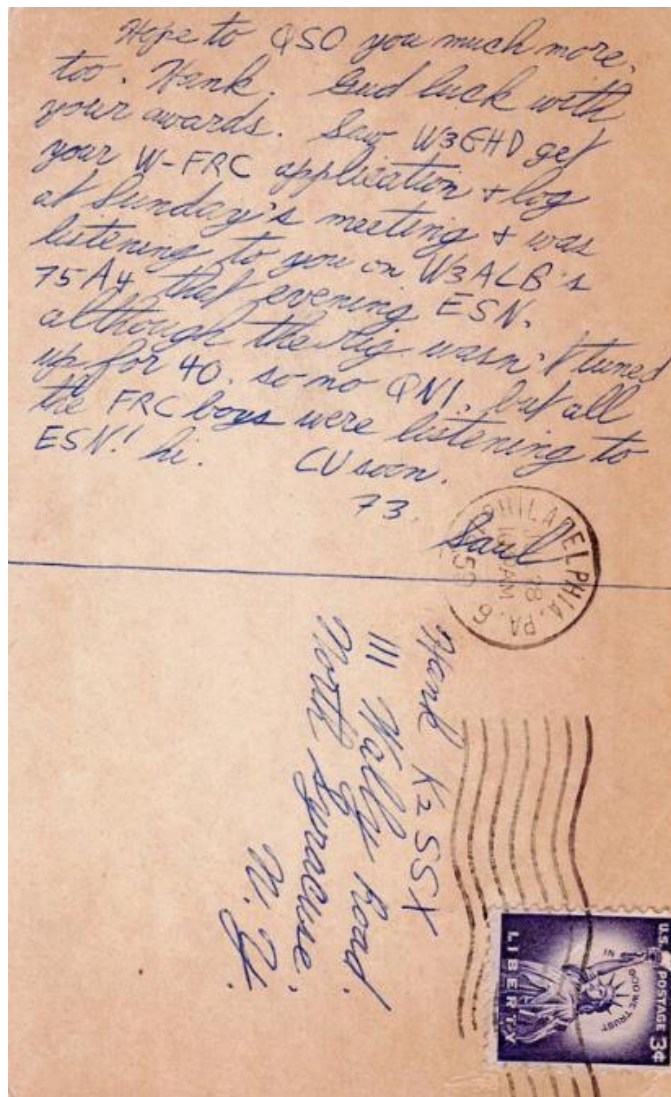 Hope to QSO you much more,
too. Hank. Gud luck with
your awards. Saw W3GHD get
your W-FRC application + log
at Sunday's meeting + was
listening to you on W3ALB's
75A4 that evening ESN.
although the rig wasn't tuned
up for 40. so no QNI, but all
the FRC boys were listening to
ESN! hi. CU soon.
73.
Saul
PHILADELPHIA, PA. 6
28
AM
Hank K2SSX
111 Wally Road.
North Syracuse.
N.Y.
U.S. POSTAGE 3¢
IN GOD WE TRUST
LIBERTY